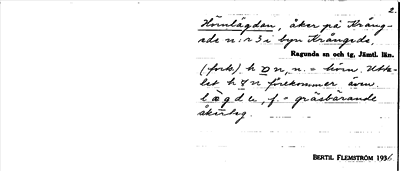 2.
Hörnlägdan, åker på Krång-
ede n:r 3 i byn Krångede,
Ragunda sn och tg, Jämtl. län.
(fork.) h n, n. = hörn. Utta-
let h n förekommer även.
l g d e, f. = gräsbärande
åkerteg.
BERTIL FLEMSTRÖM 1936.